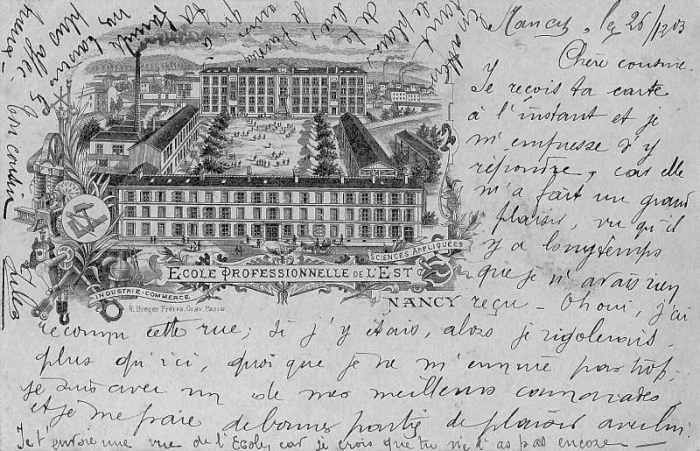 Nancy, le 26/12 03
Chère cousine.
Je reçois ta carte
à l'instant et je
m'empresse d'y
répondre, car elle
m'a fait un grand
plaisir, vu qu'il
y a longtemps
que je n'avais rien
reçu - Oh oui, j'ai
reconnu cette rue; si j'y étais, alors je rigolerais
plus qu'ici, quoi que je ne m'ennuie pas trop,
je suis avec un de mes meilleurs camarades,
et je me paie de bonnes parties de plaisir avec lui.
Je t'envoie une vue de l'Ecole, car je crois que tu ne l'as pas encore
En atten
dant
le plaisir
de te
lire, je
Ton cousin
Jules
ECOLE PROFESSIONNELLE DE L'EST
SCIENCES APPLIQUÉES
INDUSTRIE-COMMERCE
NANCY
Bieger Frères, Grav, Paris